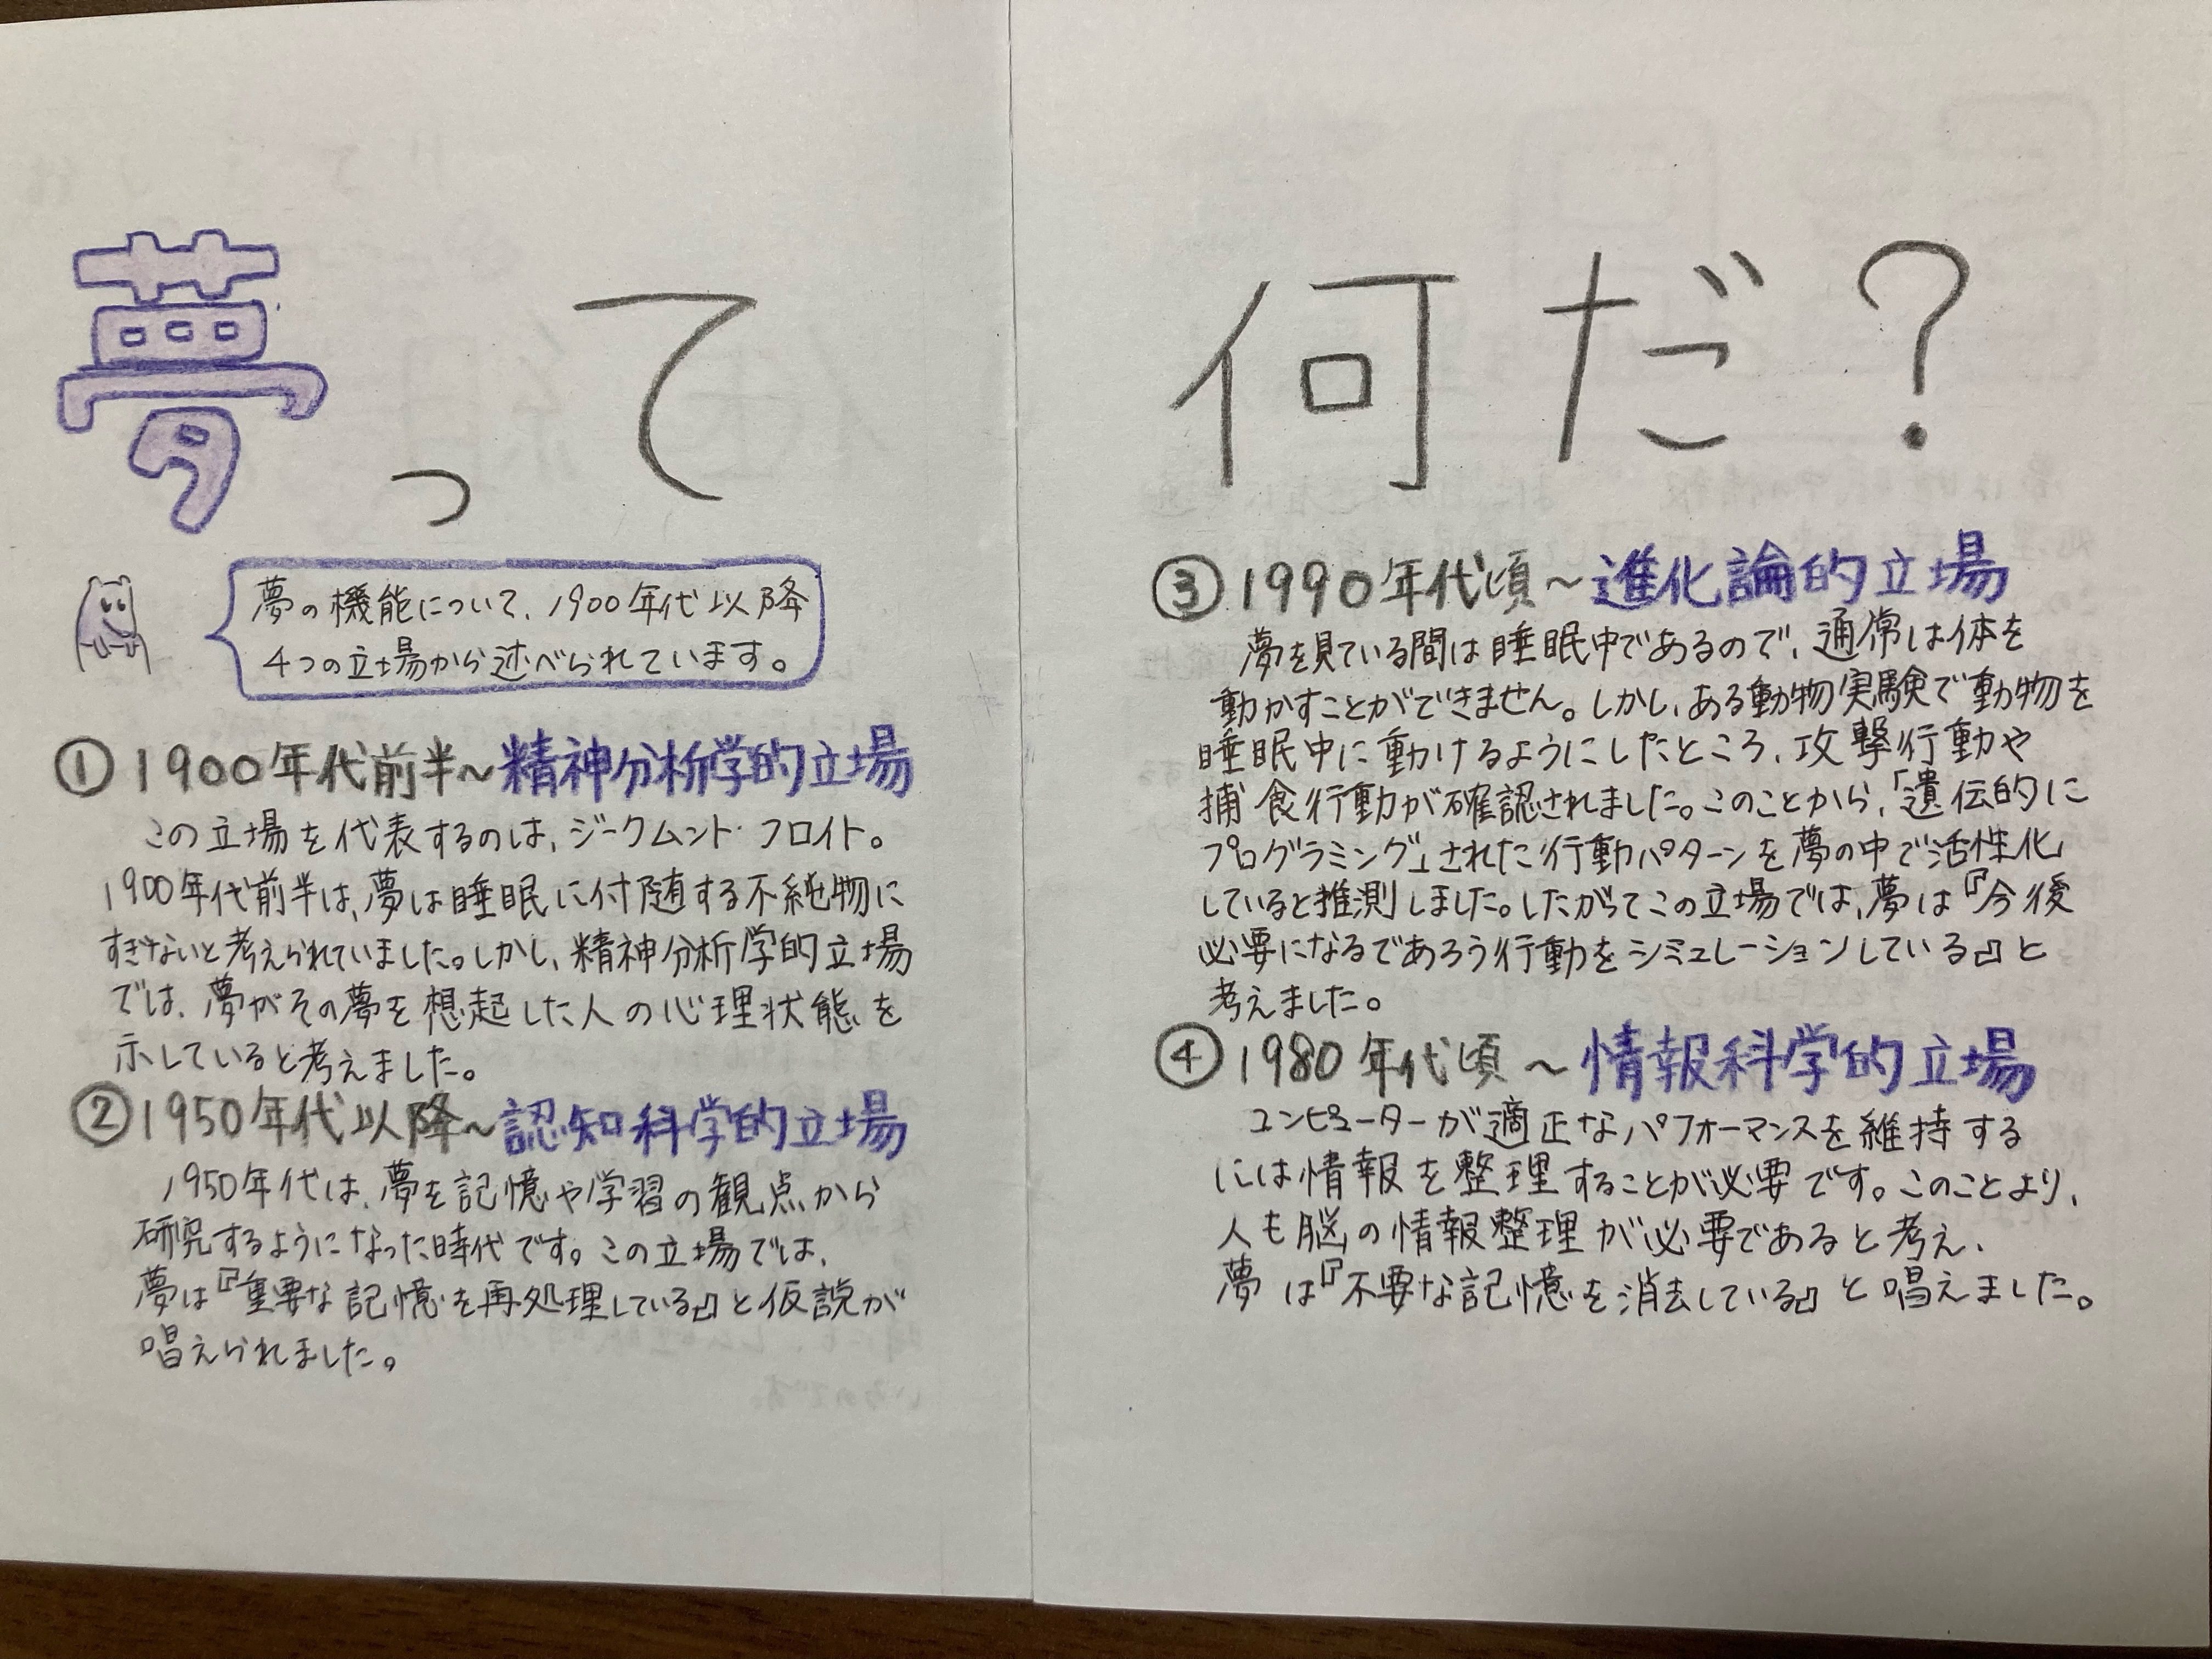 夢って
夢の機能について、1900年代以降
4つの立場から述べられています。
① 1900年代前半~精神分析学的立場
この立場を代表するのは、ジークムント・フロイト。
1900年代前半は、夢は睡眠に付随する不純物に
すぎないと考えられていました。しかし、精神分析学的立場
では、夢がその夢を想起した人の心理状態を
示していると考えました。
② 1950年代以降~認知科学的立場
1950年代は、夢を記憶や学習の観点から
研究するようになった時代です。この立場では、
夢は『重要な記憶を再処理している』と仮説が
唱えられました。
何だ?
③ 1990年代頃~進化論的立場
夢を見ている間は睡眠中であるので、通常は体を
動かすことができません。しかし、ある動物実験で動物を
睡眠中に動けるようにしたところ、攻撃行動や
捕食行動が確認されました。このことから、「遺伝的に
プログラミング」された行動パターンを夢の中で活性化
していると推測しました。したがってこの立場では、夢は『今後
必要になるであろう行動をシミュレーションしている』と
考えました。
④ 1980年代頃~情報科学的立場
コンピューターが適正なパフォーマンスを維持する
には情報を整理することが必要です。このことより、
人も脳の情報整理が必要であると考え、
夢は『不要な記憶を消去している』と唱えました。